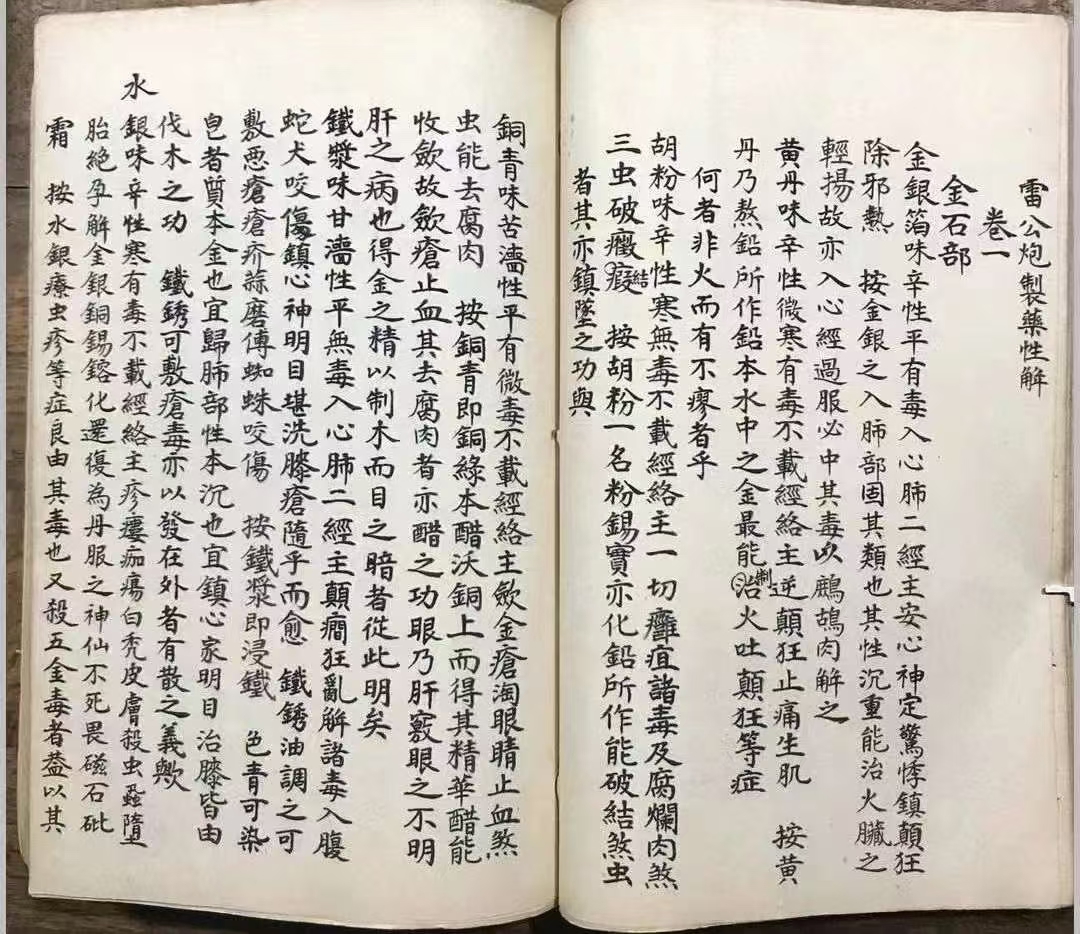 雷公炮製藥性解
卷一
金石部
金銀箔味辛性平有毒入心肺二經主安心神定驚悸鎮顛狂
除邪熱 按金銀之入肺部固其類也其性沉重能治火臟之
輕揚故亦入心經過服必中其毒以鷓鴣肉解之
黃丹味辛性微寒有毒不載經絡主逆顛狂止痛生肌 按黃
丹乃熬鉛所作鉛本水中之金最能治制火吐顛狂等症
何者非火而有不瘳者乎
胡粉味辛性寒無毒不載經絡主一切癰疽諸毒及腐爛肉煞
三虫破癥瘕結 按胡粉一名粉錫寶亦化鉛所作能破結煞虫
者其亦鎮墜之功與
銅青味苦濇性平有微毒不載經絡主歛金瘡淘眼睛止血煞
虫能去腐肉 按銅青即銅綠本醋沃銅上而得其精華醋能
收歛故歛瘡止血其去腐肉者亦醋之功眼乃肝竅眼之不明
肝之病也得金之精以制木而目之暗者從此明矣
鐵漿味甘濇性平無毒入心肺二經主顛癇狂亂解諸毒入腹
蛇犬咬傷鎮心神明目堪洗膝瘡隨乎而愈 鐵銹油調之可
敷惡瘡瘡疥蒜磨傅蜘蛛咬傷 按鐵漿即浸鐵 色青可染
皂者質本金也宜歸肺部性本沉也宜鎮心家明目治膝皆由
伐木之功 鐵銹可敷瘡毒亦以發在外者有散之義歟
水
銀味辛性寒有毒不載經絡主疹瘻痂瘍白禿皮膚殺虫蝨墮
胎絕孕解金銀銅錫鎔化還復為丹服之神仙不死畏磁石砒
霜 按水銀療虫疹等症良由其毒也又殺五金毒者葢以其